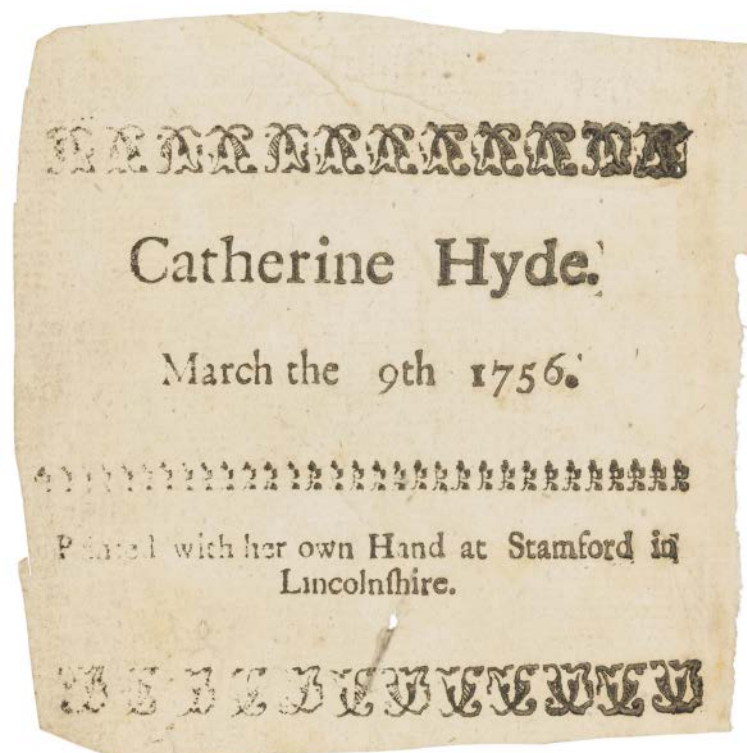 Catherine Hyde.
March the 9th 1756.
Printed with her own Hand at Stamford in
Lincolnſhire.